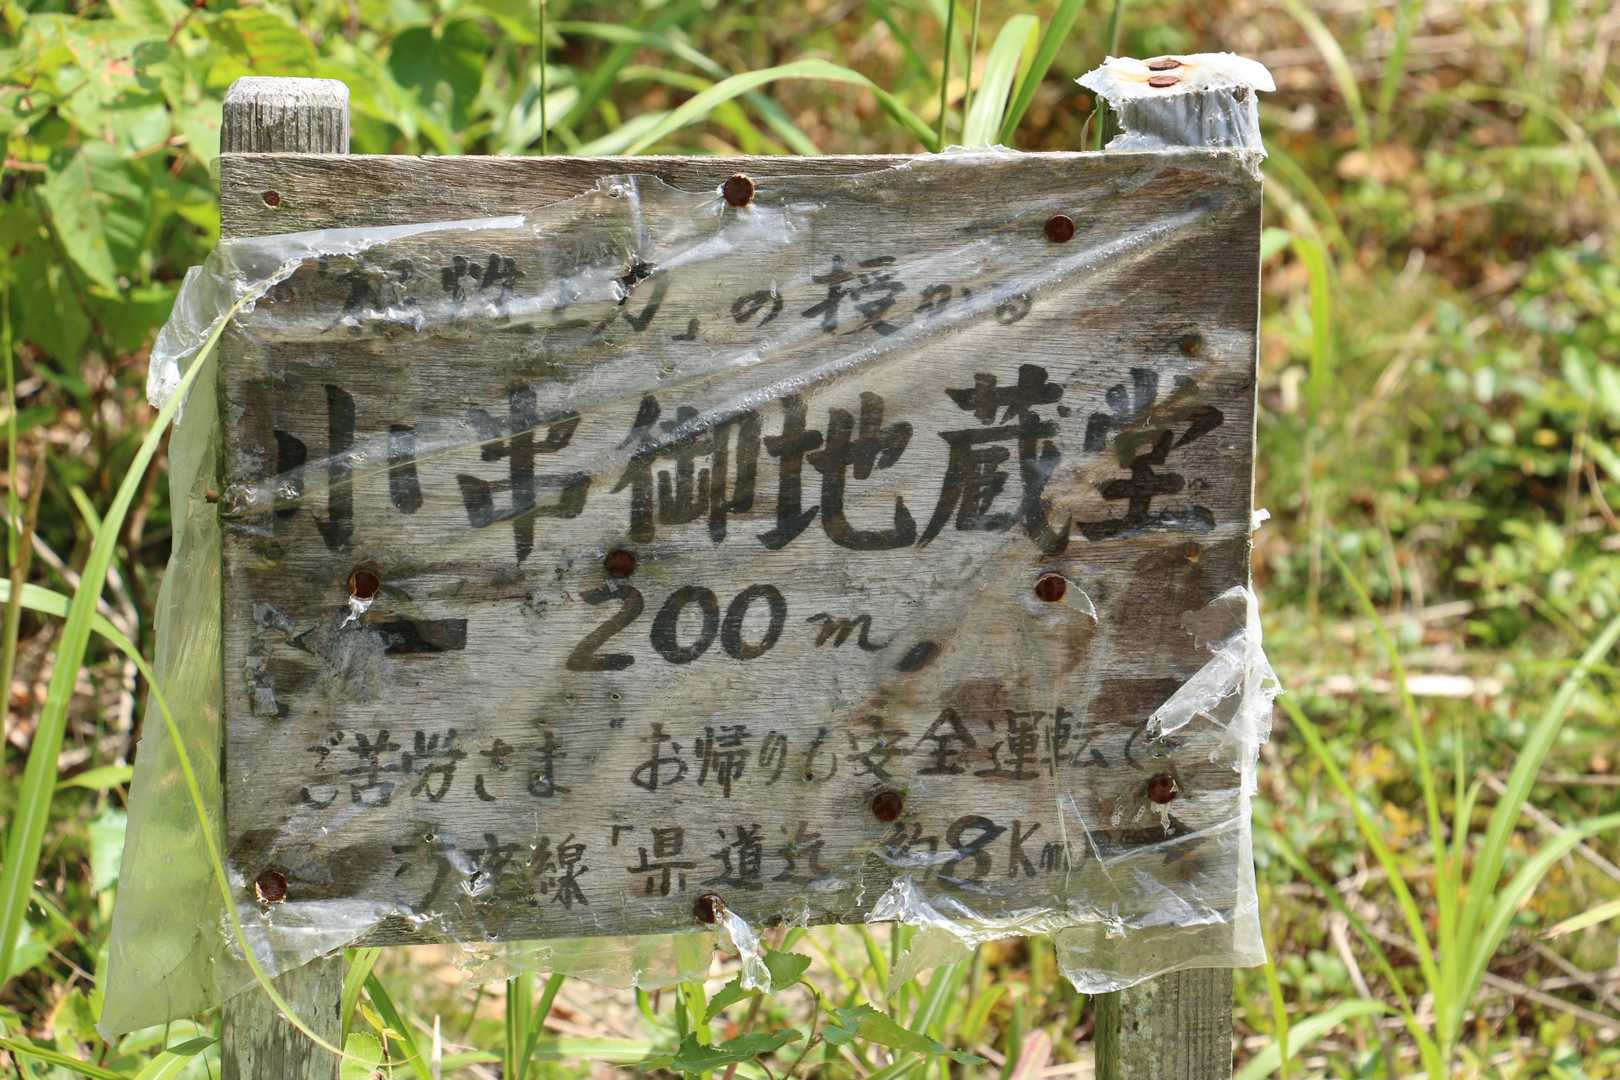 の授かる
小中御地蔵堂
200m
ご苦労さま お帰りも安全運転で
線「県道迄 約8Km」